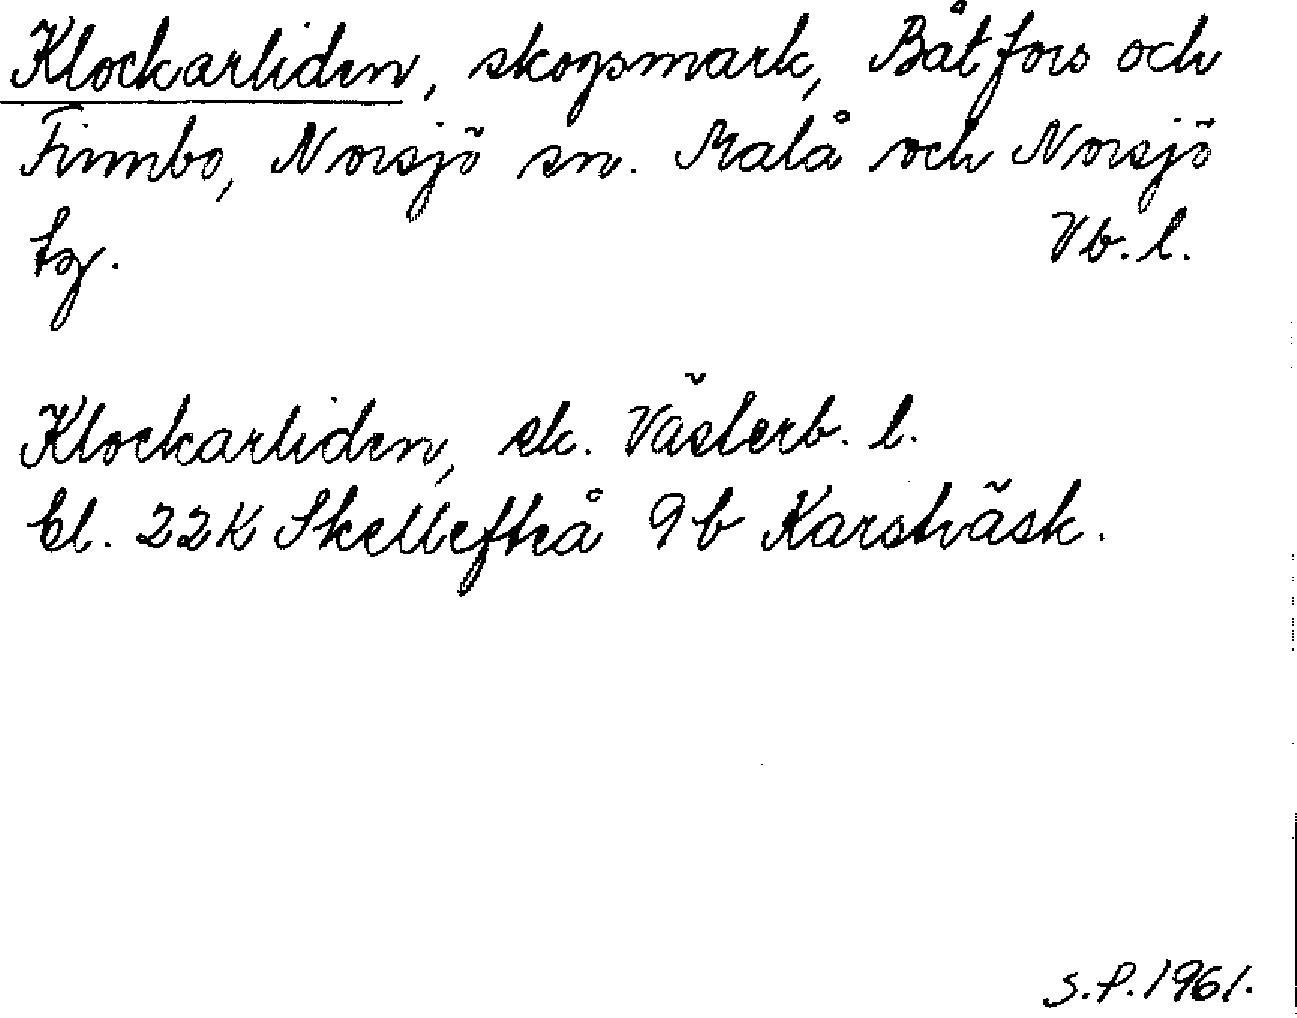 Klockarliden, skogsmark, Båtfors och
Finnbo, Norsjö sn. Malå och Norsjö
tg. Vb. l.
Klockarliden, sk. Västerb. l.
bl. 22K Skellefteå 9b Karsträsk.
S.P. 1961.